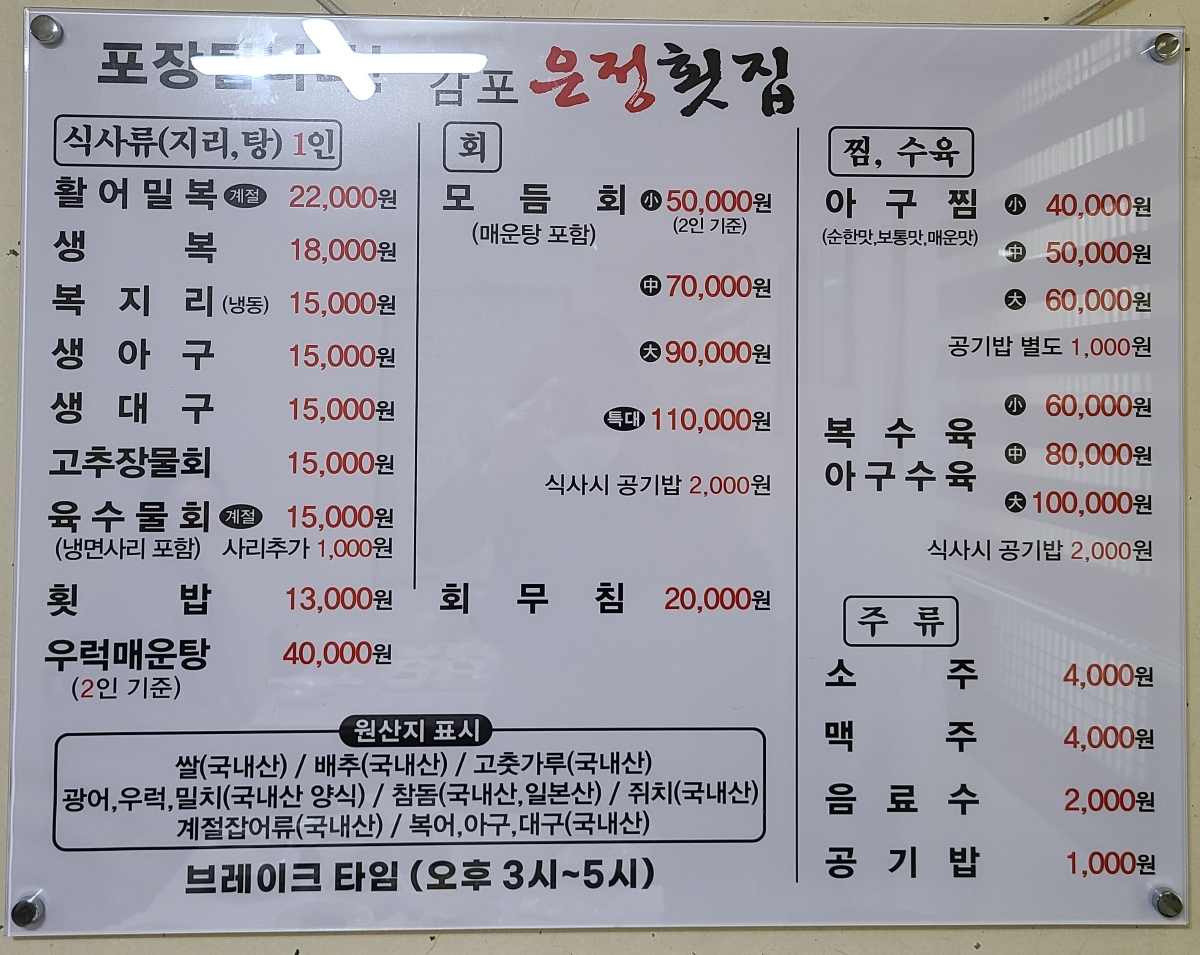 감포 은정횟집
식사류(지리,탕) 1인
활어밀복 계절 22,000원
생복 18,000원
복지리 (냉동) 15,000원
생아구 15,000원
생대구 15,000원
고추장물회 15,000원
육수물회 계절 15,000원
(냉면사리 포함) 사리추가 1,000원
횟밥 13,000원
우럭매운탕 40,000원
(2인 기준)
회
모듬회 小 50,000원
(매운탕 포함) (2인 기준)
中 70,000원
大 90,000원
특대 110,000원
식사시 공기밥 2,000원
회무침 20,000원
찜, 수육
아구찜 小 40,000원
(순한맛,보통맛,매운맛) 中 50,000원
大 60,000원
공기밥 별도 1,000원
小 60,000원
복수육
中 80,000원
아구수육
大 100,000원
식사시 공기밥 2,000원
주류
소주 4,000원
맥주 4,000원
음료수 2,000원
공기밥 1,000원
원산지 표시
쌀(국내산) / 배추(국내산) / 고춧가루(국내산)
광어,우럭,밀치(국내산 양식) / 참돔(국내산,일본산) / 쥐치(국내산)
계절잡어류(국내산) / 복어,아구,대구(국내산)
브레이크 타임 (오후 3시~5시)